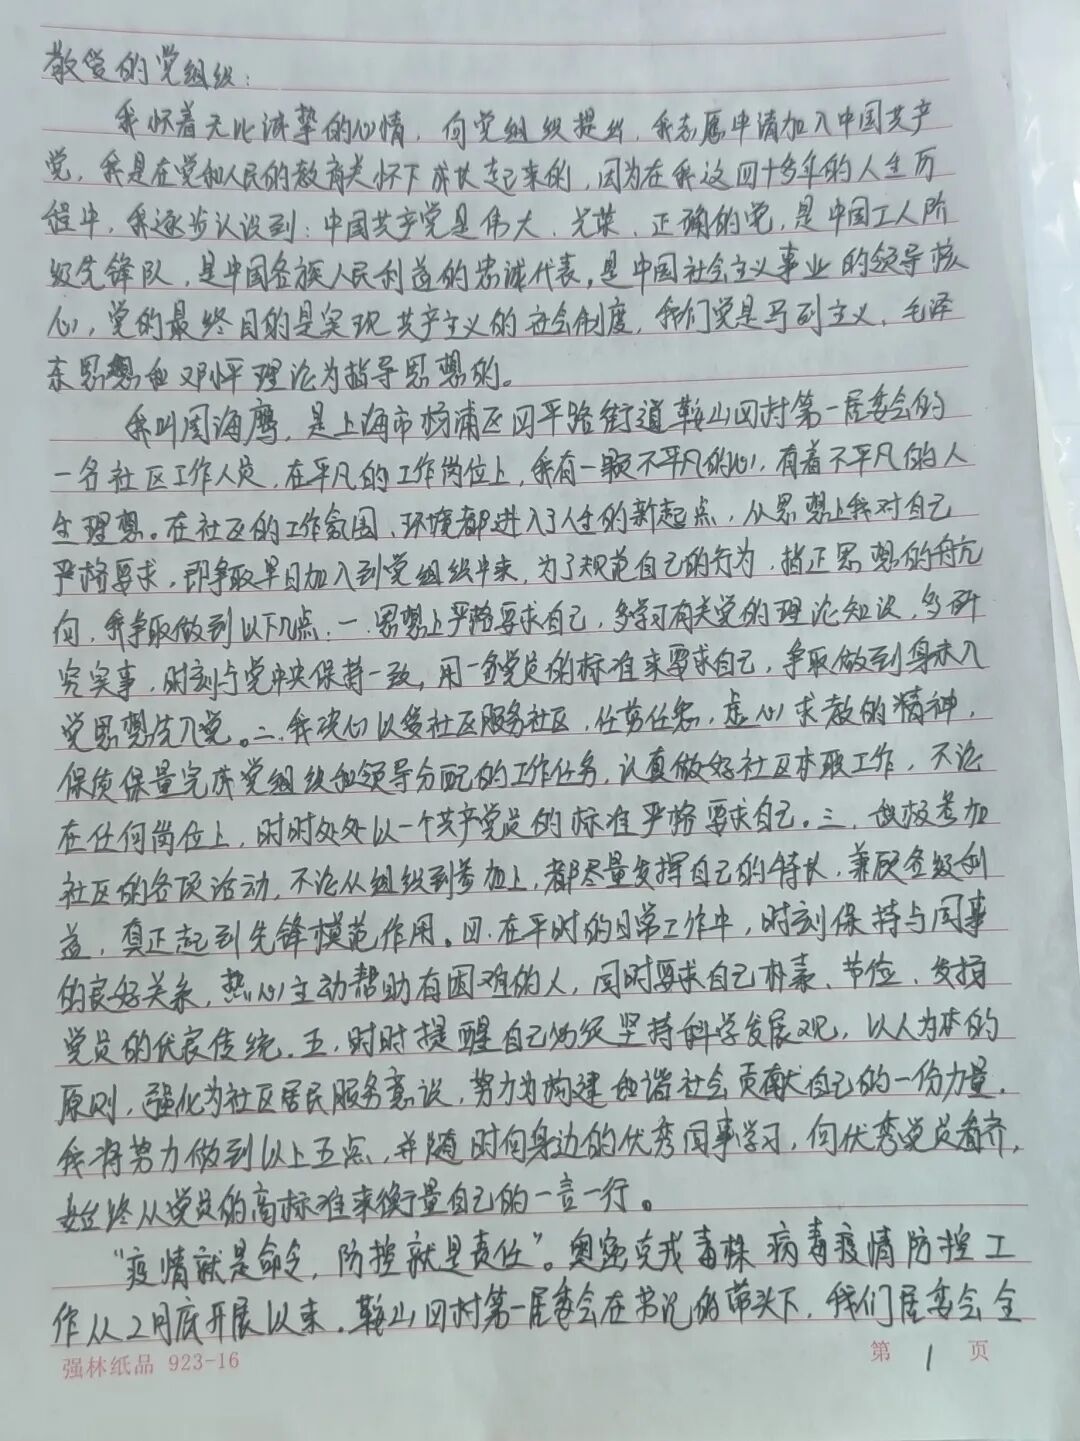 敬爱的党组织：
我怀着无比诚挚的心情，向党组织提出，我志愿申请加入中国共产
党，我是在党和人民的教育关怀下成长起来的，因为在我这四十多年的人生历
程中，我逐步认识到：中国共产党是伟大、光荣、正确的党，是中国工人阶
级先锋队，是中国各族人民利益的忠诚代表，是中国社会主义事业的领导核
心，党的最终目的是实现共产主义的社会制度，我们党是马列主义、毛泽
东思想和邓小平理论为指导思想的。
我叫周海鹰，是上海市杨浦区四平路街道鞍山四村第一居委会的
一名社区工作人员，在平凡的工作岗位上，我有一颗不平凡的心，有着不平凡的人
生理想。在社区的工作氛围、环境都进入了人生的新起点，从思想上我对自己
严格要求，即争取早日加入到党组织中来，为了规范自己的行为，指正思想的航
向，我争取做到以下几点，一、思想上严格要求自己，多学习有关党的理论知识，多研
究实事，时刻与党中央保持一致，用一名党员的标准来要求自己，争取做到身未入
党思想先入党。二、我决心以爱社区服务社区，任劳任怨，虚心求教的精神，
保质保量完成党组织和领导分配的工作任务，认真做好社区本职工作，不论
在任何岗位上，时时处处以一个共产党员的标准严格要求自己。三、积极参加
社区的各项活动，不论从组织到参加上，都尽量发挥自己的特长，兼顾各级利
益，真正起到先锋模范作用。四、在平时的日常工作中，时刻保持与同事
的良好关系，热心主动帮助有困难的人，同时要求自己朴素、节俭、发扬
党员的优良传统。五、时时提醒自己必须坚持科学发展观，以人为本的
原则，强化为社区居民服务意识，努力为构建和谐社会贡献自己的一份力量，
我将努力做到以上五点，并随时向身边的优秀同事学习，向优秀党员看齐，
始终从党员的高标准来衡量自己的一言一行。
“疫情就是命令，防控就是责任”。奥密克戎毒株病毒疫情防控工
作从2月底开展以来，鞍山四村第一居委会在书记的带头下，我们居委会全
强林纸品 923-16
第1页